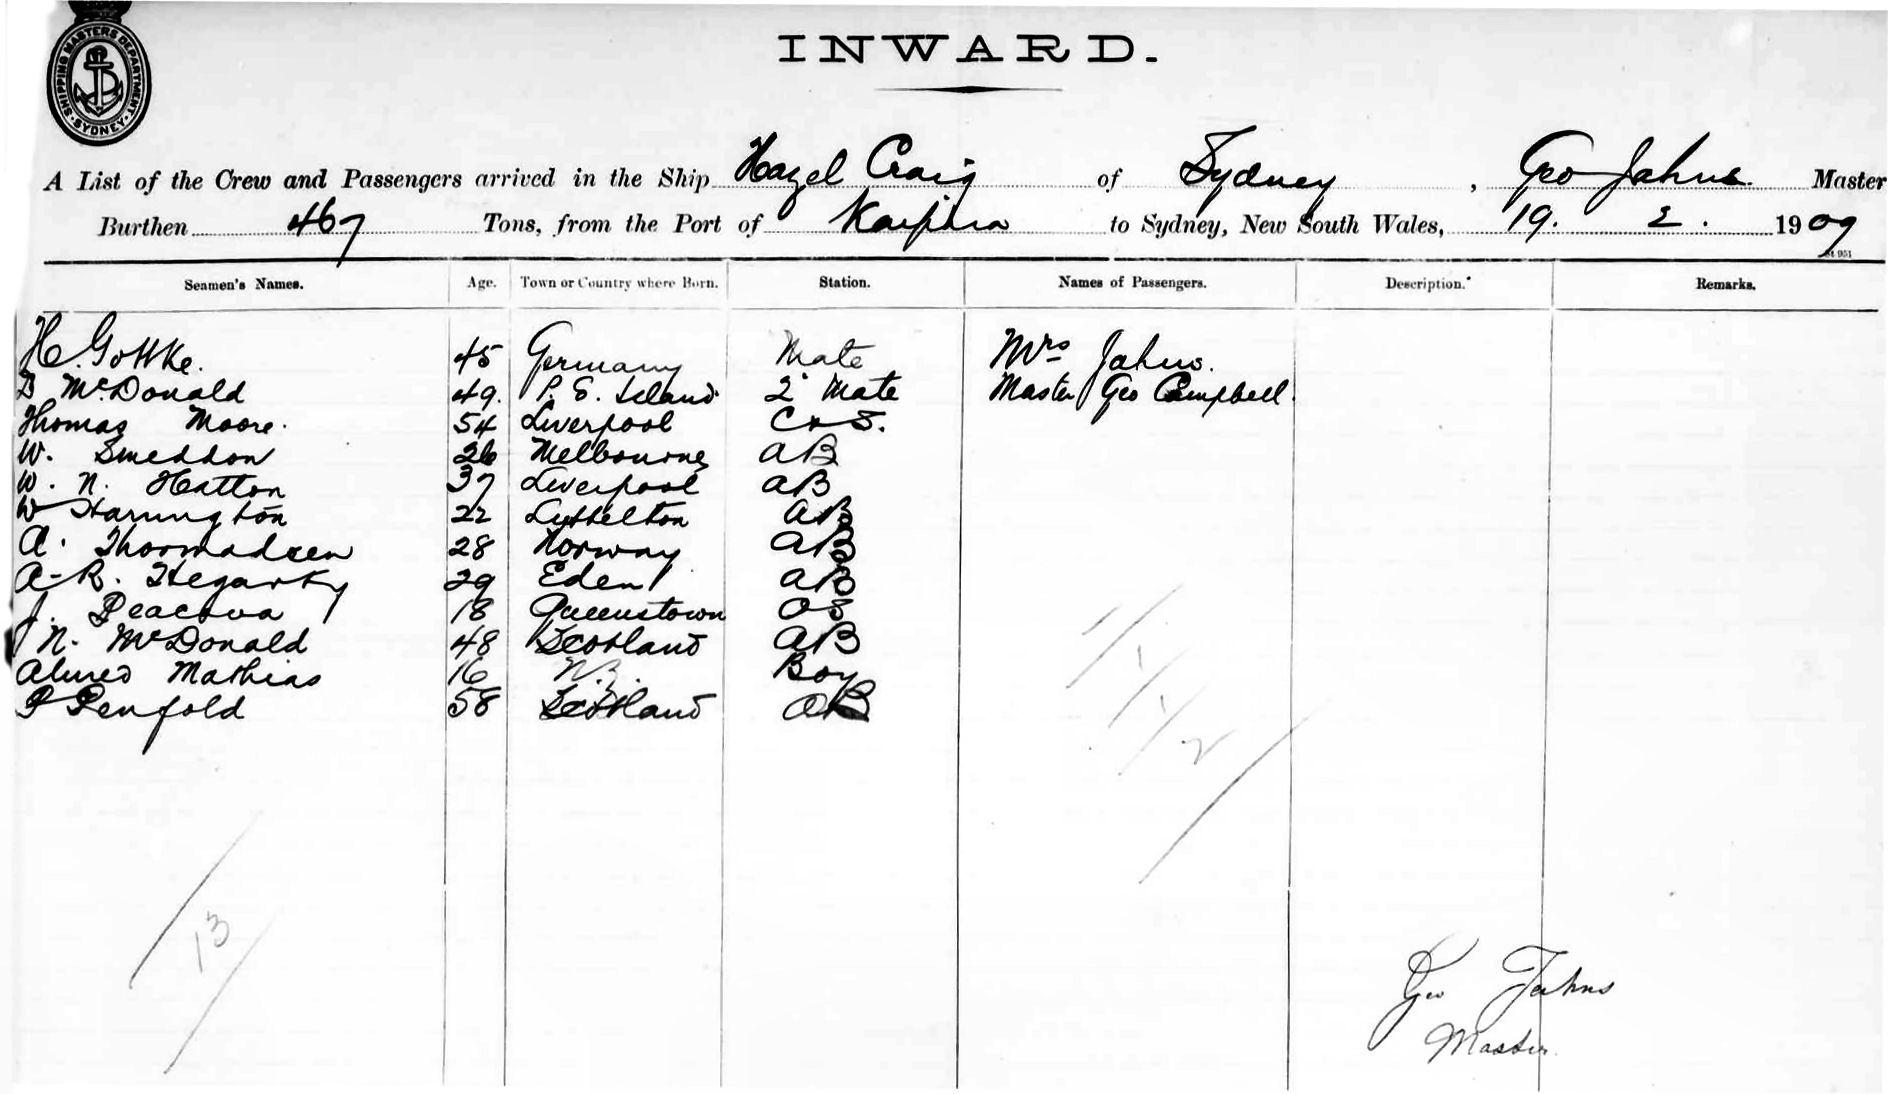 SHIPPING MASTERS DEPARTMENT SYDNEY
INWARD.
A List of the Crew and Passengers arrived in the Ship Hazel Craig of Sydney, Geo Jahns. Master
Burthen 467 Tons, from the Port of Kaipara to Sydney, New South Wales, 19. 2. 1909
St 951
Seamen's Names. Age. Town or Country where Born. Station. Names of Passengers. Description. Remarks.
H. Gottke. 45 Germany Mate Mrs Jahns.
D McDonald 49. P. E. Island 2 Mate Master Geo Campbell.
Thomas Moore. 54 Liverpool C & S.
W. Smeddon 26 Melbourne AB
W. N. Hatton 37 Liverpool AB
W Harrington 22 Lyttelton AB
A. Thormadsen 28 Norway AB
A. R. Hegarty 29 Eden AB
J. 18 Queenstown OS
N. McDonald 48 Scotland AB
Mathias 16 N.Z. Boy
P Penfold 58 Scotland AB
1/1
1/1/2
13
Geo Jahns
Master